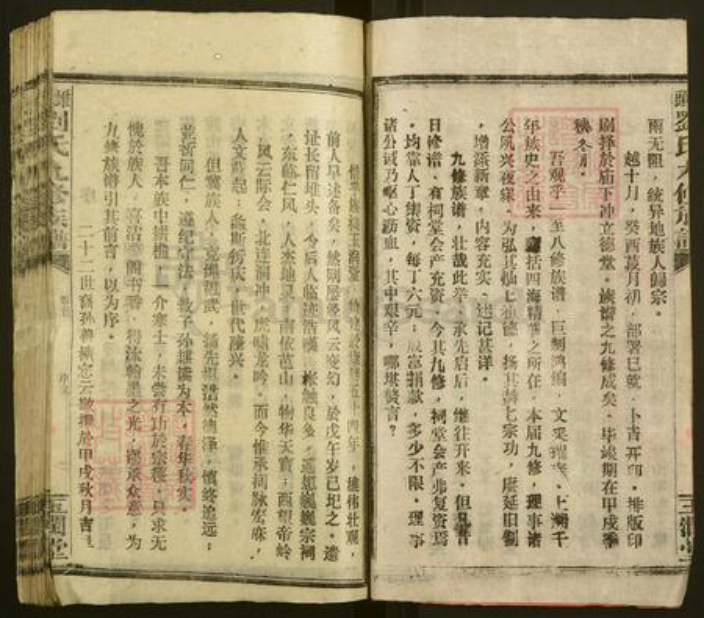 雨无阻，统异地族人归宗。
越十月，癸酉葭月初，部署已就，卜吉开印。排版印
刷择於庙下冲立德堂。族谱之九修成矣。毕竣期在甲戌季
秋冬月。
吾观乎一至八修族谱，巨制鸿编，文采璀璨，上溯千
年族史之由来，囊括四海精英之所在。本届九修，理事诸
公夙兴夜寐，为弘其祖七种德，扬其宗七宗功，赓延旧制
，增添新章，内容充实，述记甚详。
九修族谱，壮哉此举，承先启后，继往开来。但见昔
日修谱，有祠堂会产充资，今其九修，祠堂会产弗复资焉
，均靠人丁集资，每丁六元；殷富捐献，多少不限。理事
诸公诚乃呕心沥血，其中艰辛，哪堪赘言？
五十四年，雄伟壮观，
前人早述备矣，然则屡经风云变幻，於戊午岁已圯之。遗
址长留堆头，令后人临迹浩叹，怅触良多，遥想巍巍宗祠
，东临仁风，人杰地灵；南依芭山，物华天宝；西望帝岭
，风云际会，北连洞冲，虎啸龙吟。而今惟承润脉宏庥，
人文蔚起；螽斯衍庆，世代隆兴。
但冀族人，克绳祖武，扬先祖浩然德泽，慎终追远；
遵纪守法，教子孙耕读为本，春华秋实。
吾本族中樗植，一介寒士，未尝有功於宗族，只求无
愧於族人。喜沾书香，得沐翰墨之光，谬承众意，为
九修族谱引其前言，以为序。
二十二世裔孙 於甲戌秋月吉旦
刘氏九修族谱
劉氏九修族譜
三润堂